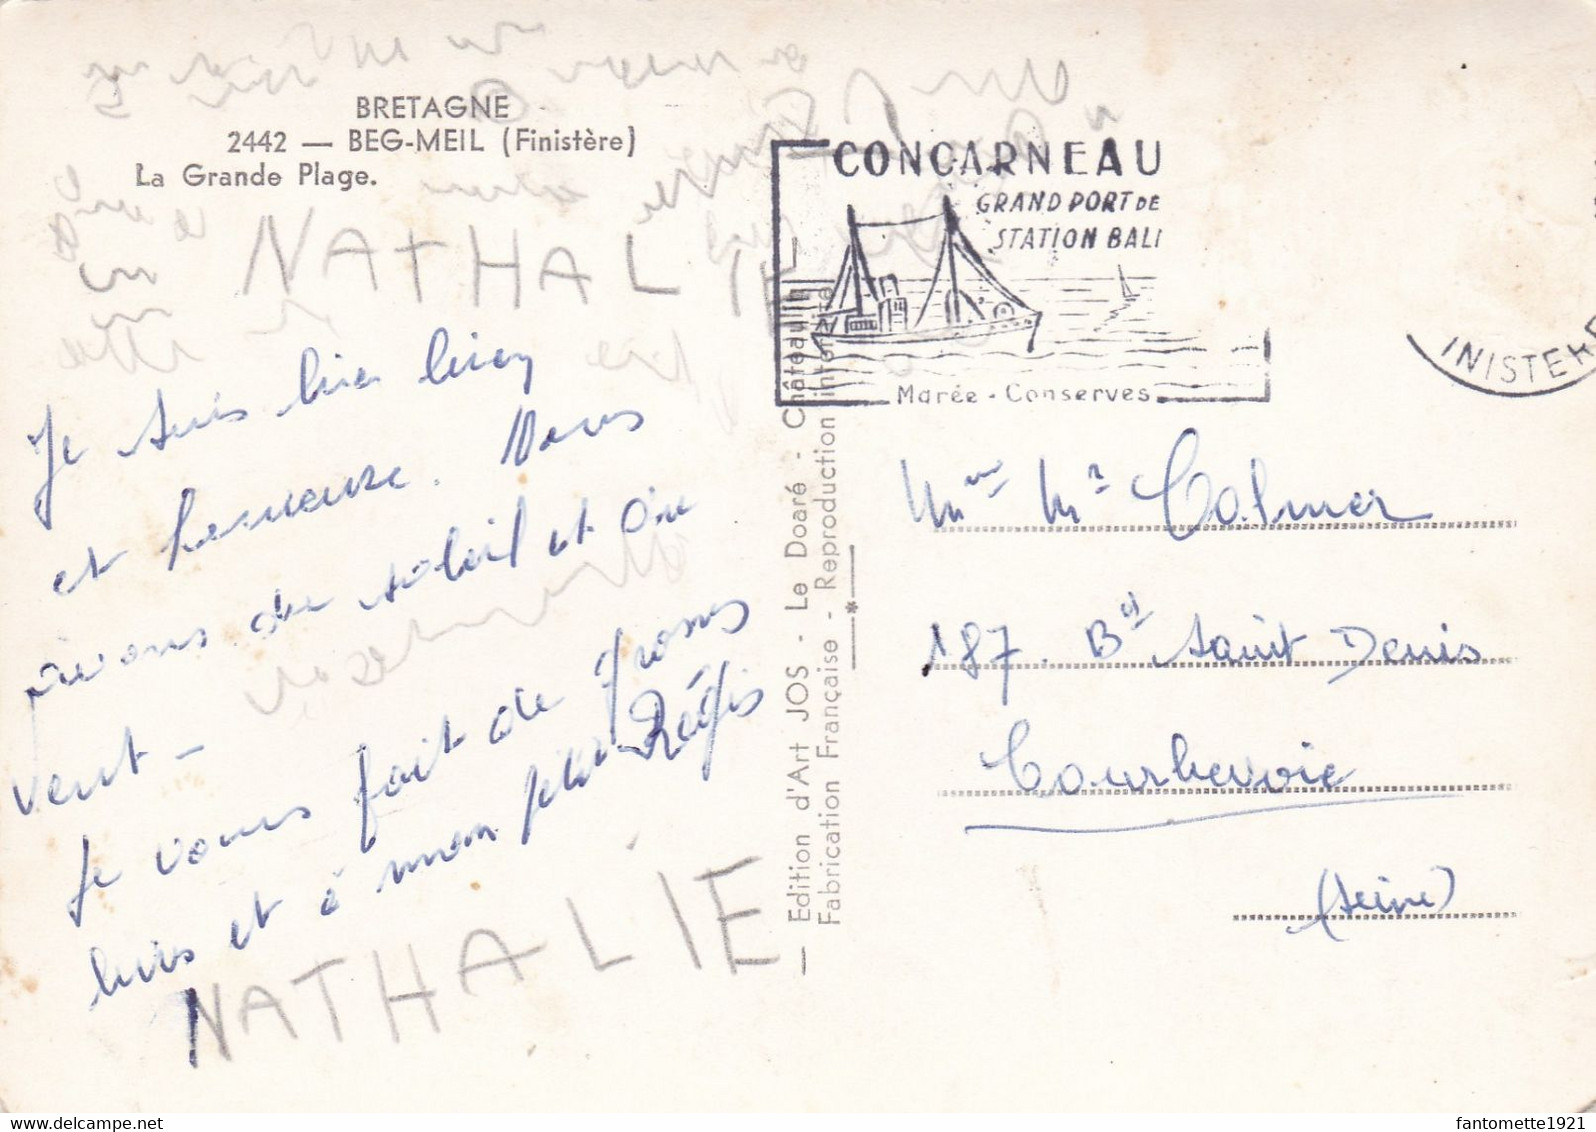 BRETAGNE
2442 — BEG-MEIL (Finistère)
La Grande Plage.
NATHALIE
Je suis bien
et heureuse. Nous
avons du soleil et du
vent —
Je vous fait de grosses
bises et à mon petit Régis
NATHALIE
— Edition d'Art JOS - Le Doaré - Châteaulin —
Fabrication Française - Reproduction interdite
CONCARNEAU
GRAND PORT DE
STATION BALI
Marée - Conserves
INISTERE
Mme Mr Colmer
187. Bd Saint Denis
Courbevoie
(Seine)
fantomette1921